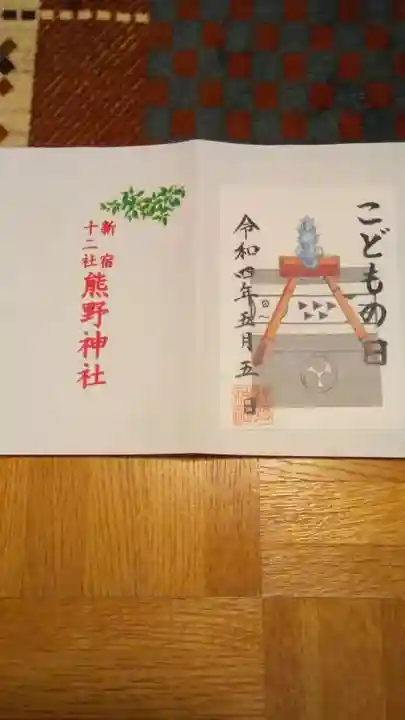 こどもの日
令和四年五月五日
新宿
十二社
熊野神社